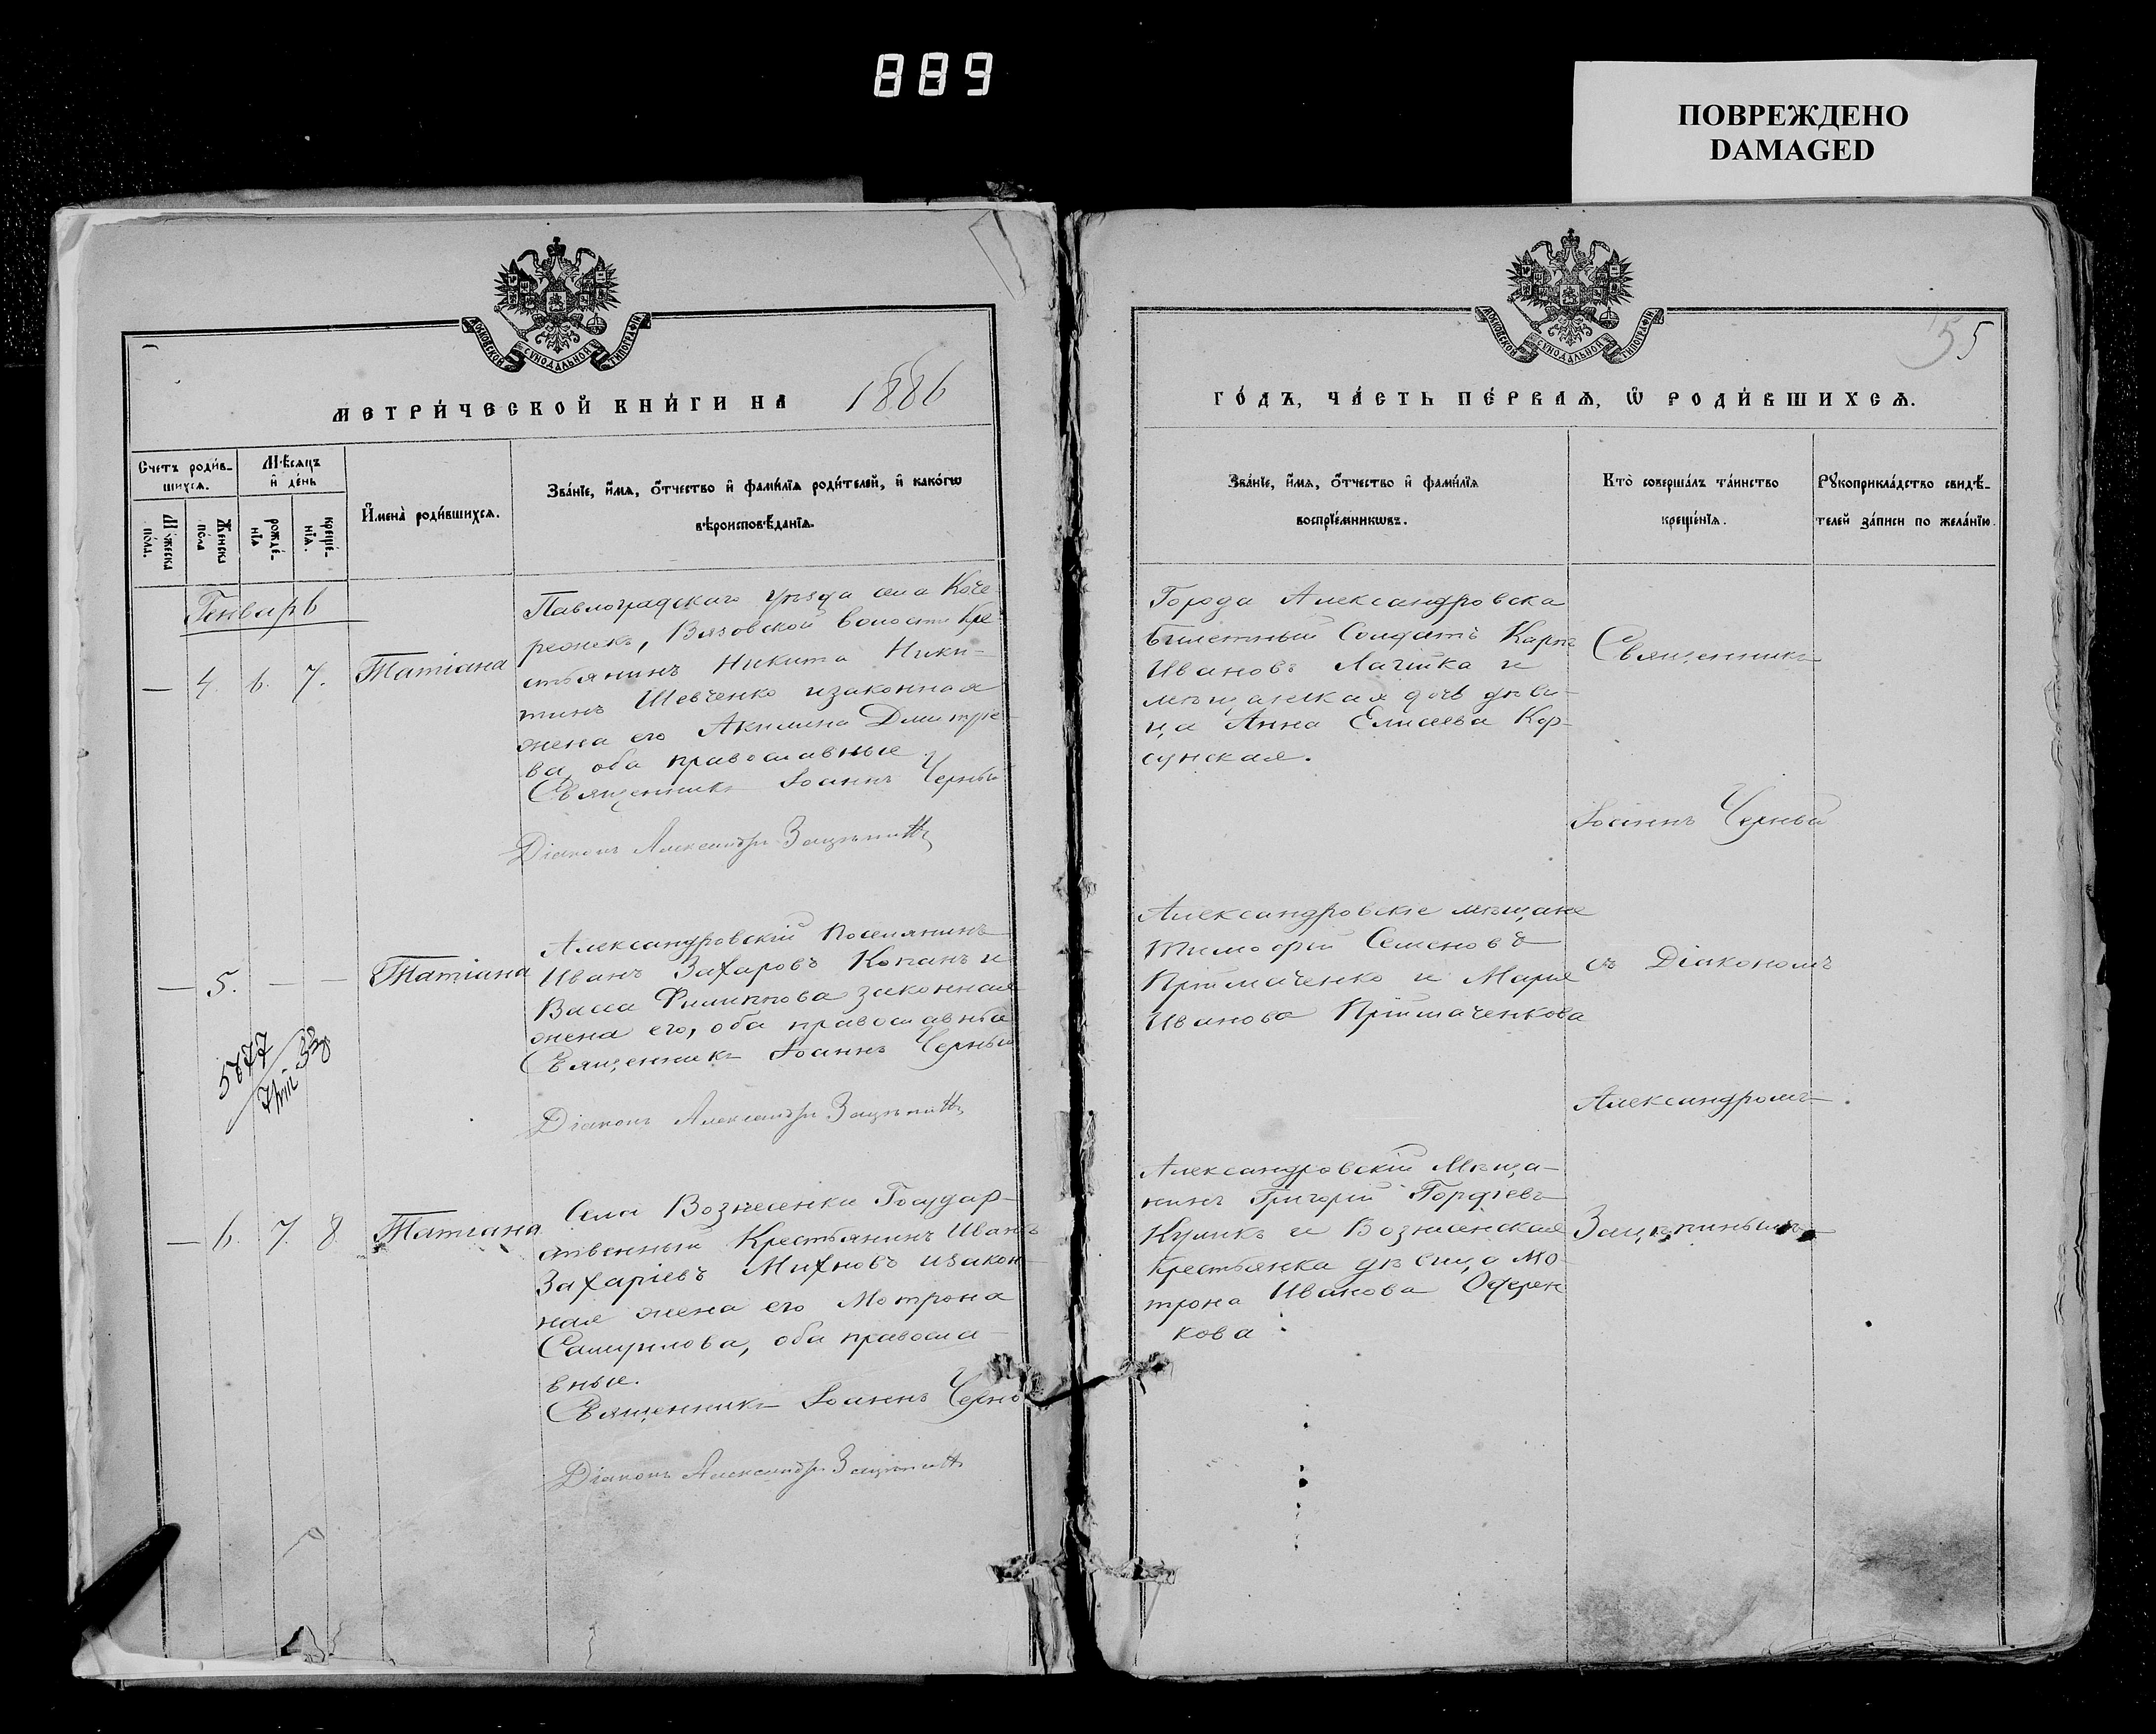 889
ПОВРЕЖДЕНО
DAMAGED
МОСКОВСКОЙ СУНОДАЛЬНОЙ ТИПОГРАФІИ
МЕТРИ́ЧЕСКОЙ КНИ́ГИ НА 1886
Счетъ роди́в-
шихсѧ.
Мѣ́сѧцъ
и҆ де́нь
И҆мена̀ роди́вшихсѧ.
Зва́нїе, и҆́мѧ, ѻ҆́тчество и҆ фами́лїѧ роди́телей, и҆ како́гѡ
вѣроисповѣ́данїѧ.
Мꙋ́жеска
по́ла.
Же́нска
по́ла
рожде́-
нїѧ
креще́-
нїѧ.
Генварь
— 4. 6. 7. Татіана
Павлоградскаго уѣзда села Коче-
режекъ, Вязовской волости Кре-
стьянинъ Никита Ники-
тинъ Шевченко и законная
жена его Акилина Димитріе-
ва, оба православные.
Священникъ Іоаннъ Черный
Діаконъ Александръ
— 5. — — Татіана
Александровскій Поселянинъ
Иванъ Захаровъ Копанъ и
Васса Филиппова законная
жена его, оба православные
Священникъ Іоаннъ Черный
Діаконъ Александръ
5877
— 6. 7. 8. Татіана
Села Вознесенки Государ-
ственный Крестьянинъ Иванъ
Захаріевъ Михновъ и закон-
ная жена его Мотрона
Самуилова, оба правосла-
вные.
Священникъ Іоаннъ Черный
Діаконъ Александръ
МОСКОВСКОЙ СУНОДАЛЬНОЙ ТИПОГРАФІИ
55
ГО́ДЪ, ЧА́СТЬ ПЕ́РВАѦ, Ѡ҆ РОДИ́ВШИХСѦ.
Зва́нїе, и҆́мѧ, ѻ҆́тчество и҆ фами́лїѧ
воспрїе́мникѡвъ.
Кто̀ соверша́лъ та́инство
креще́нїѧ.
Рꙋкоприкла́дство свидѣ́-
телей за́писи по жела́нїю.
Города Александровска
билетный Солдатъ Карпъ
Ивановъ и
мѣщанская дочь дѣви-
ца Анна Елисеева Кор-
сунская.
Священникъ
Іоаннъ Черный
Александровскіе мѣщане
Тимофей Семеновъ
Пріймаченко и Марія
Иванова Пріймаченкова
съ Діакономъ
Александромъ
Александровскій Мѣща-
нинъ Григорій Гордіевъ
Куликъ и Вознесенская
крестьянка дѣвица Мо-
трона Иванова
кова